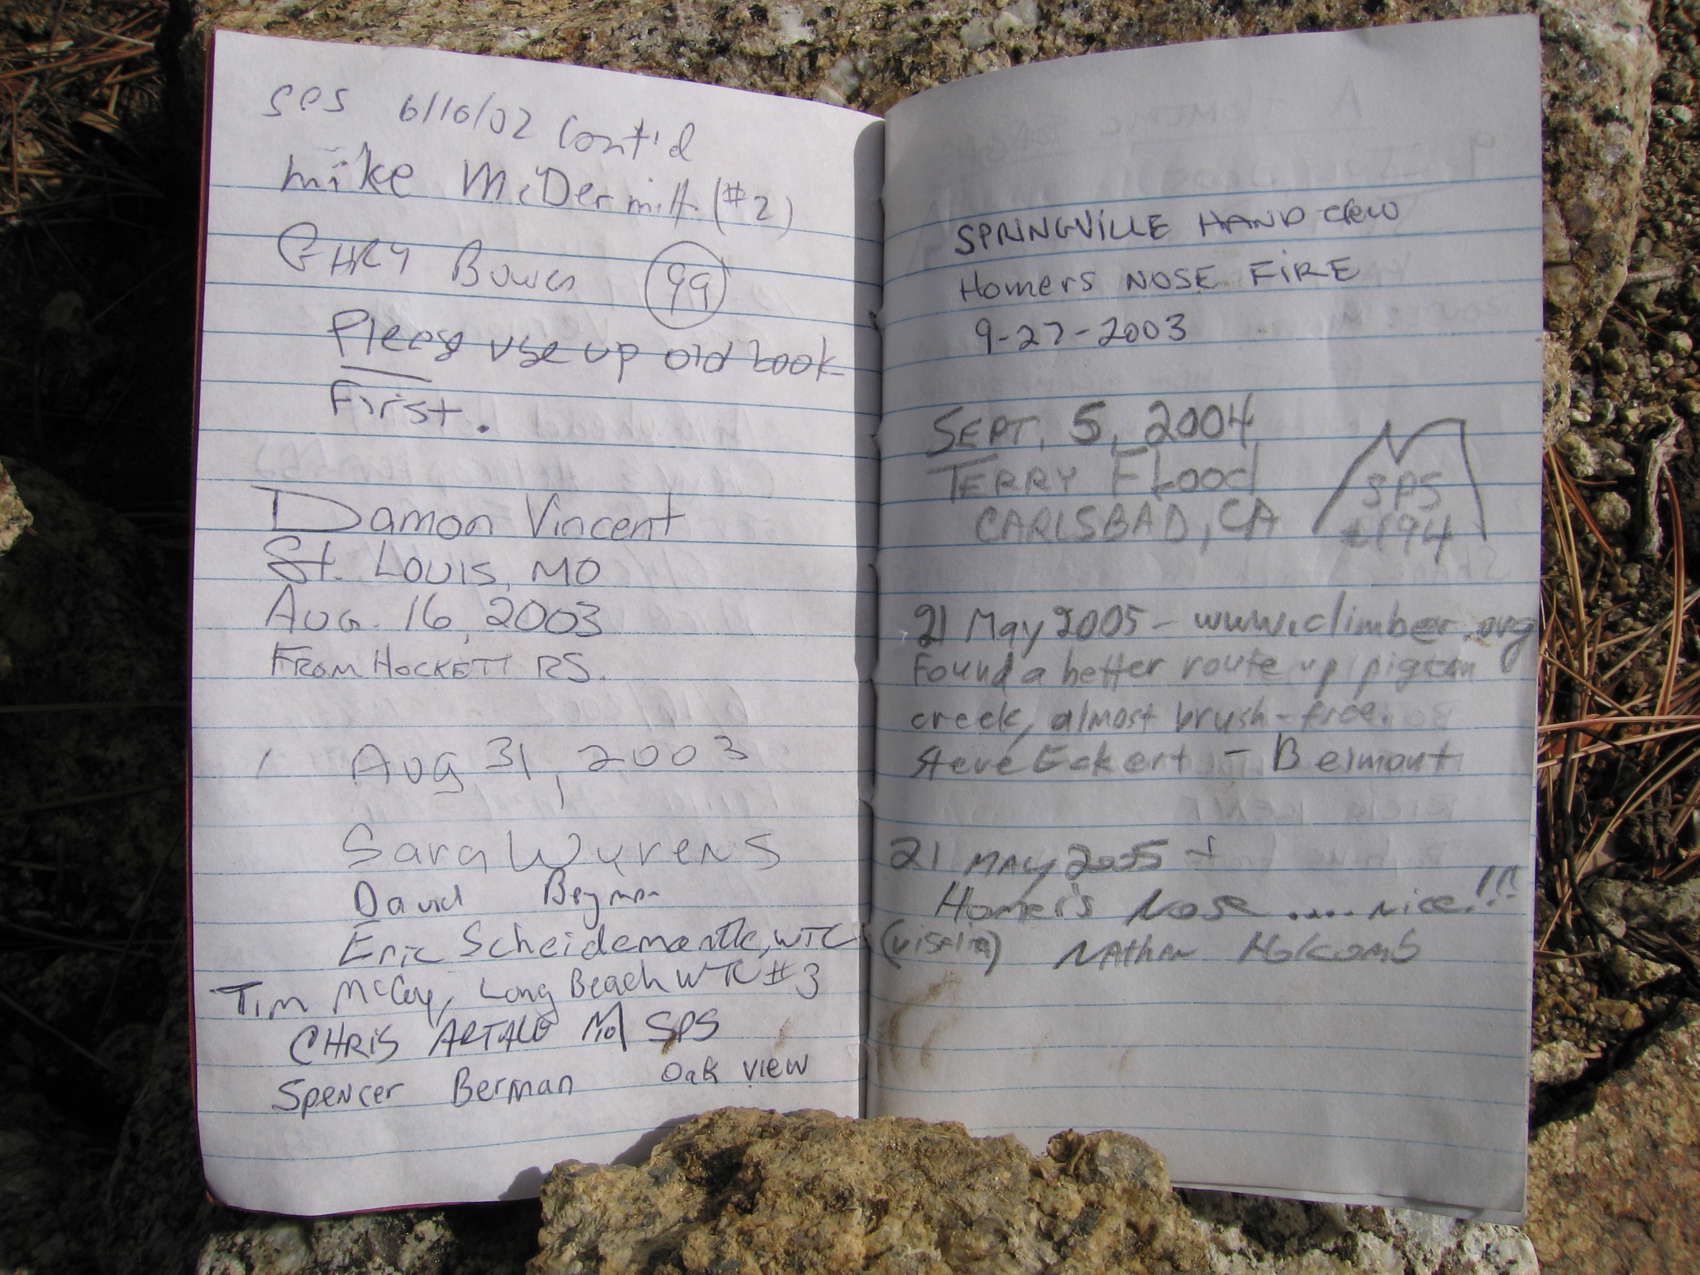 SPS 6/16/02 Cont'd
Mike McDermitt (#2)
GARY Bowen 99
Please use up old book
First.
Damon Vincent
St. Louis, MO
Aug. 16, 2003
FROM HOCKETT RS.
Aug 31, 2003
Sara Wyrens
David Beymer
Eric Scheidemantle, WTC
Tim McCoy, Long Beach WTC #3
CHRIS ARTALE SPS
Spencer Berman Oak View
SPRINGVILLE HAND CREW
Homers NOSE FIRE
9-27-2003
SEPT. 5, 2004
TERRY FLOOD
CARLSBAD, CA
SPS
#194
21 May 2005 - www.climber.org
Found a better route up pigeon
creek, almost brush-free.
Steve Eckert - Belmont
21 MAY 2005
Homer's Nose .... Nice!!!
(Visalia) Nathan Holcomb